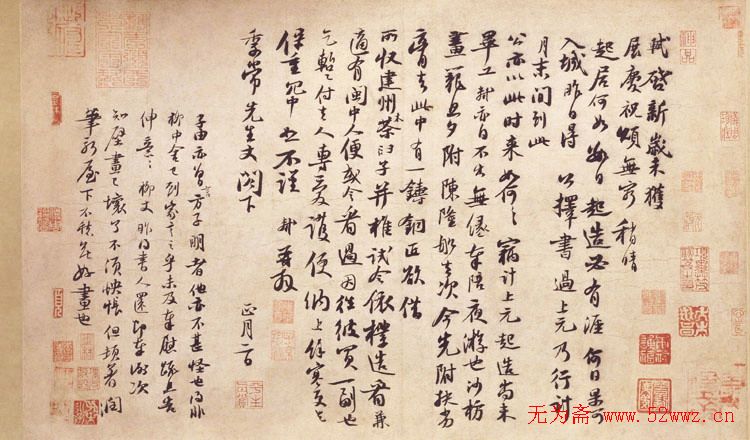 軾啓新歲未獲
展慶祝頌無窮稍晴
起居何如數日起造必有涯何日果可
入城昨日得 公擇書過上元乃行計
月末間到此
公亦以此時來如何〻竊計上元起造尚未
畢工軾亦自不出無緣奉陪夜游也沙枋
畫籠旦夕附陳隆船去次今先附扶劣
膏去此中有一鑄銅匠欲借
所收建州木茶臼子并椎試令依樣造看兼
適有閩中人便或令看過因往彼買一副也
乞暫付去人專愛護便納上餘寒更乞
保重冗中恕不謹 軾再拜
季常先生丈閣下
正月二日
子由亦曾言方子明者他亦不甚怪也得非
柳中舍已到家言之乎未及奉慰疏且告
伸意〻柳丈昨得書人還即奉謝次
知壁畫已壞了不須怏悵但頓著潤
筆新屋下不愁無好畫也
无为斋-www.52wwz.cn